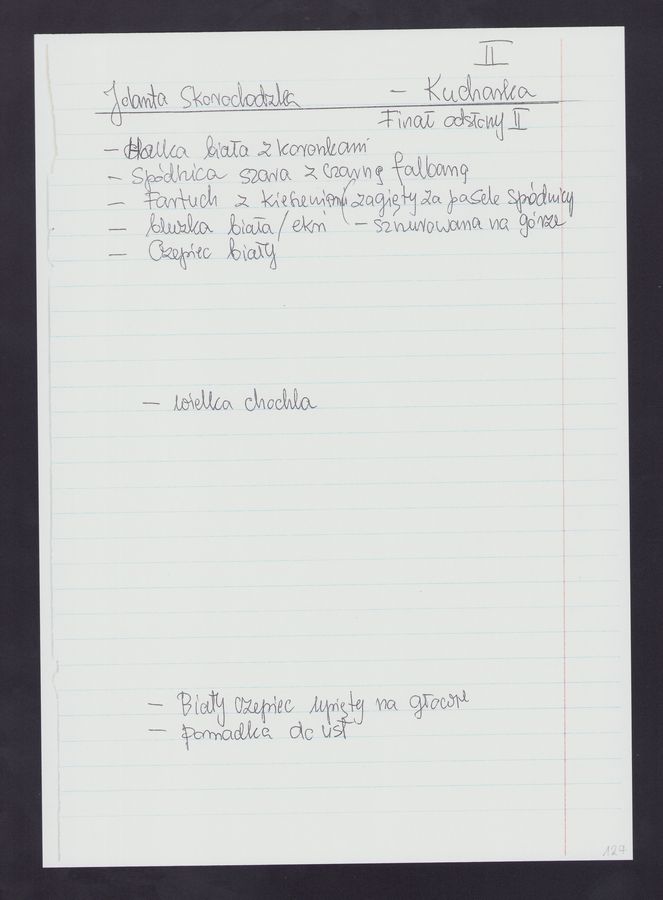 II
Jolanta Skorochodzka - Kucharka
Finał odsłony II
- Halka biała z koronkami
- Spódnica szara z czarną falbaną
- Fartuch z kieszeniami (zagięty za pasek spódnicy
- bluzka biała / ekri - sznurowana na górze
- Czepiec biały
- wielka chochla
- Biały czepiec upięty na głowie
- pomadka do ust
127